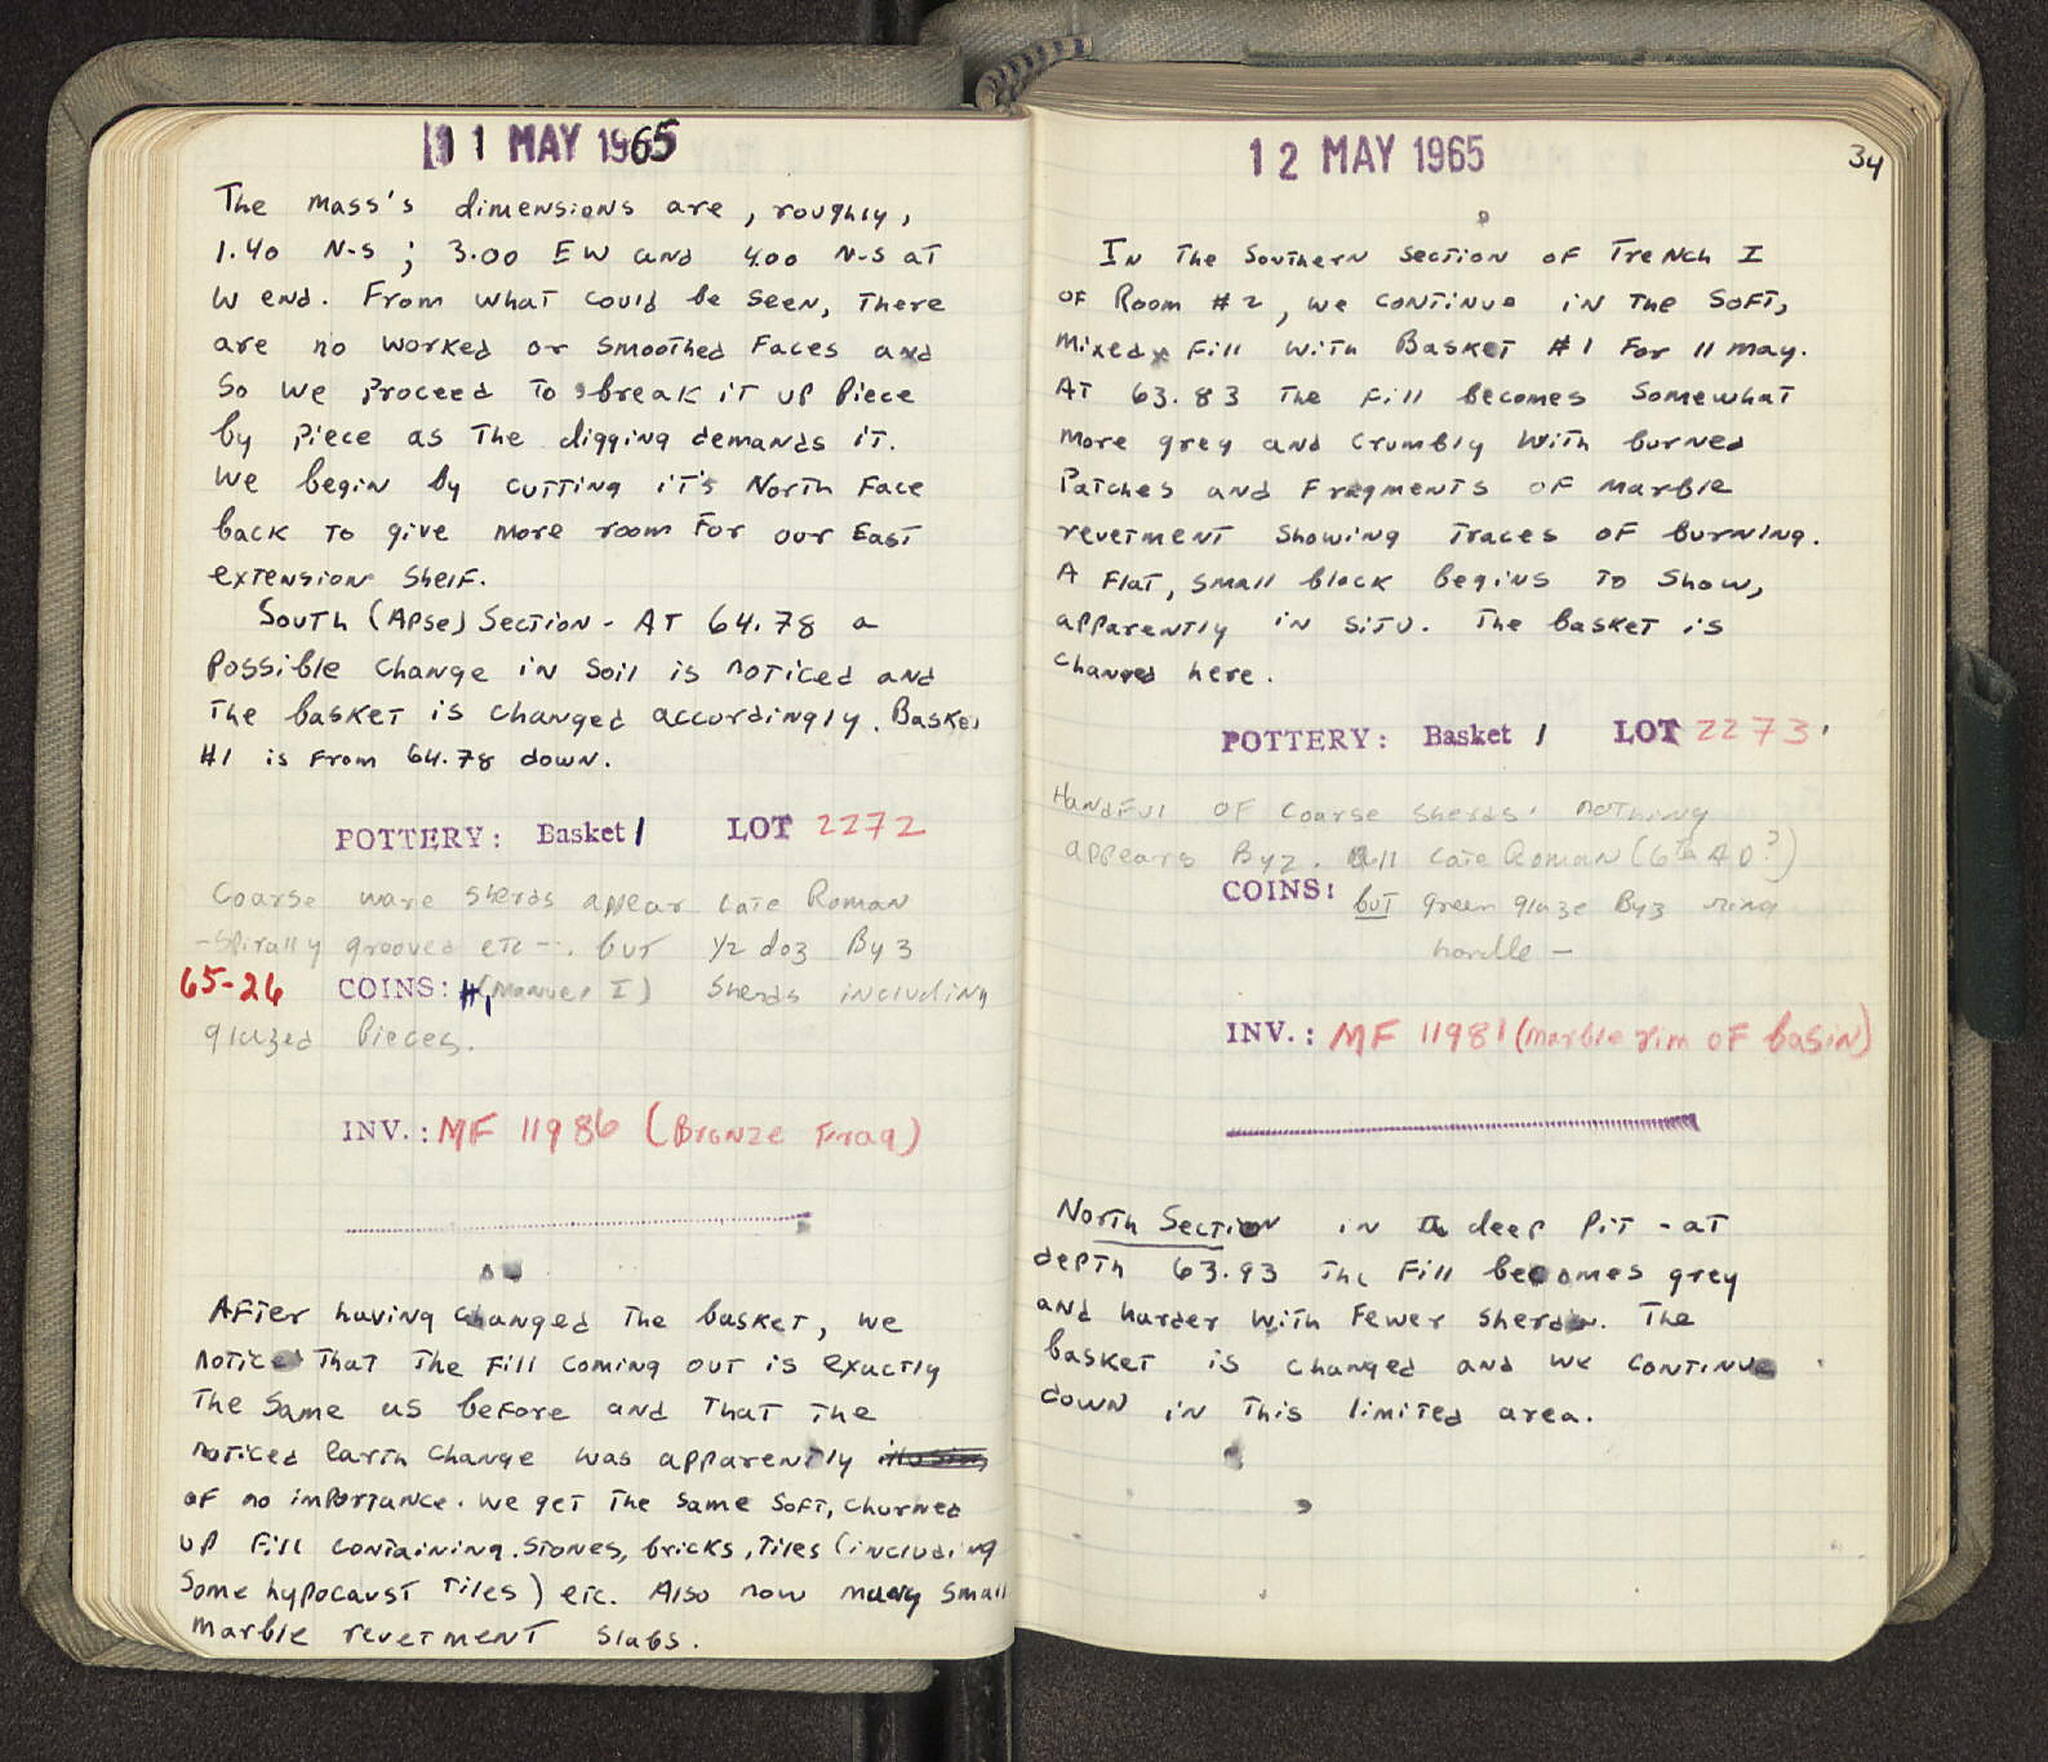 11 MAY 1965
The mass's dimensions are, roughly,
1.40 N-S; 3.00 EW and 4.00 N-S at
W end. From what could be seen, There
are no worked or smoothed Faces and
So we proceed To break iT up Piece
by piece as The digging demands iT.
We begin by cutting iT's North Face
back To give more room For our East
extension Shelf.
South (Apse) Section - AT 64.78 a
possible change in Soil is noticed and
The basket is changed accordingly. Basket
#1 is From 64.78 down.
POTTERY: Basket 1 LOT 2272
Coarse ware sherds appear Late Roman
-Spirally grooved etc-. but 1/2 doz Byz
65-26 COINS: #1 (Manuel I) Sherds including
glazed Pieces.
INV.: MF 11986 (Bronze Frag)
After having changed The basket, we
notice That The Fill coming out is exactly
The Same as before and That The
noticed Earth Change was apparently
of no importance. We get The Same Soft, churned
up Fill containing stones, bricks, Tiles (including
Some hypocaust Tiles) etc. Also now many small
marble revetment slabs.
12 MAY 1965
34
In The Southern Section of Trench I
of Room #2, we continue in The Soft,
mixed Fill with Basket #1 For 11 May.
At 63.83 The Fill becomes Somewhat
more grey and crumbly With burned
Patches and Fragments of marble
revetment Showing Traces of burning.
A Flat, small block begins To Show,
apparently in situ. The basket is
changed here.
POTTERY: Basket 1 LOT 2273
Handful of coarse sherds. nothing
appears Byz. All Late Roman (6th AD?)
COINS: but green glaze Byz ring
handle -
INV.: MF 11981 (marble rim of basin)
North Section in deep Pit - at
depth 63.93 The Fill becomes grey
and harder with Fewer Sherds. The
basket is changed and we continue
down in This limited area.